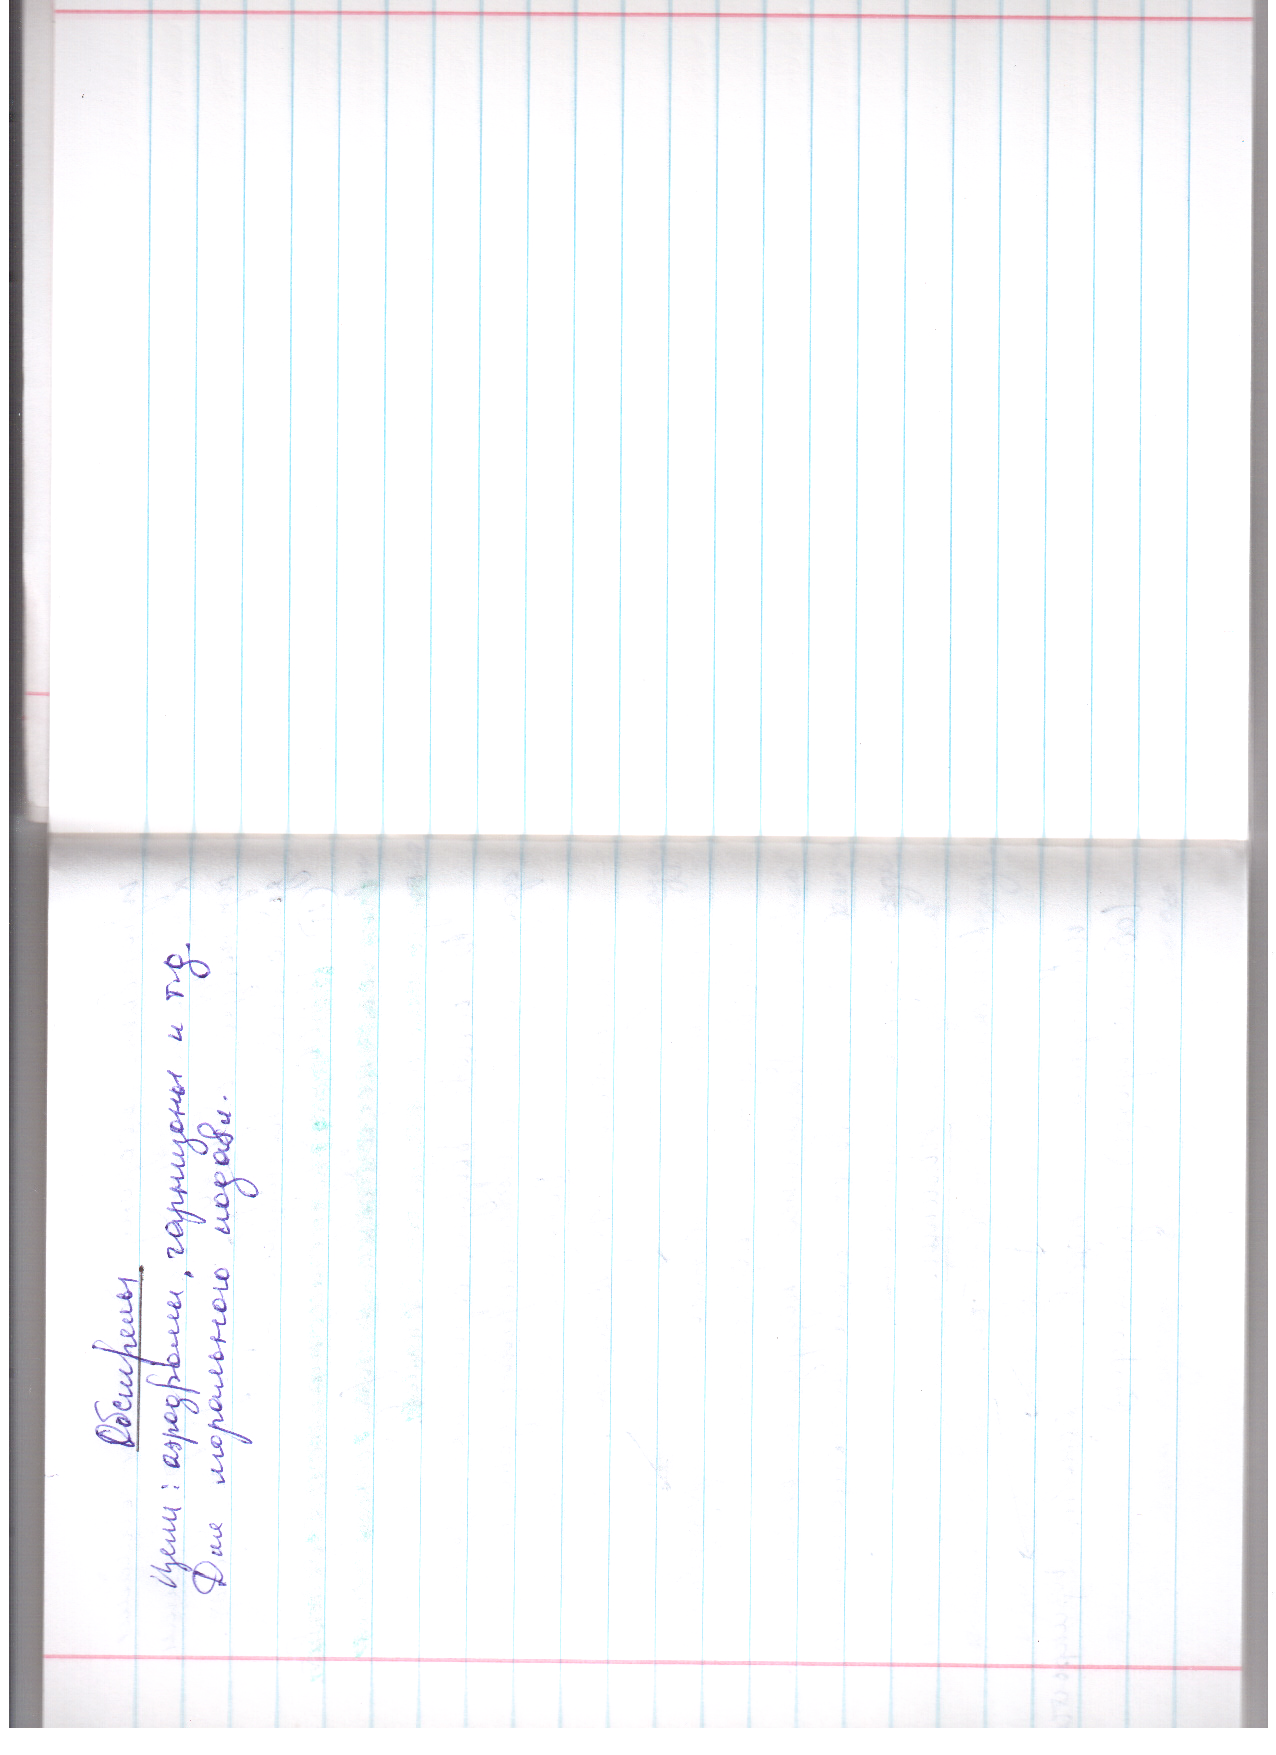 Обстрелы
Цели: аэродромы, гарнизоны и т.д.
Для морального подавл.